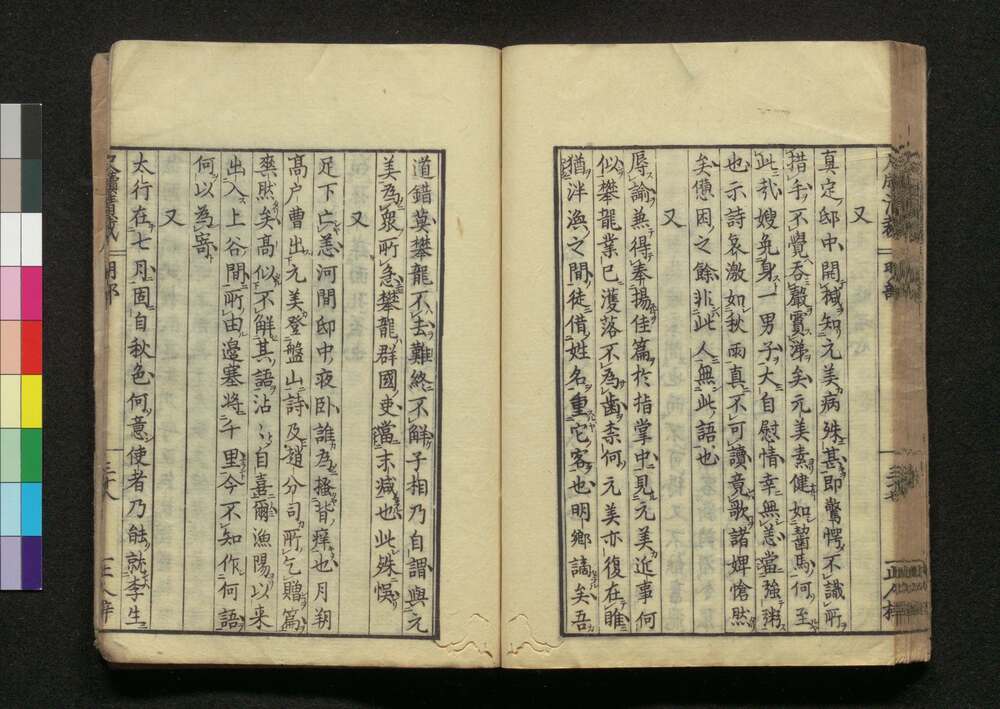 又
真定邸中開椷知元美病殊甚即驚愕不識所
措手不覺吞嚴賓涕矣元美素健如齧馬何至
此哉嫂免身一男子大自慰情幸無恙當強粥
也示詩哀激如秋雨真不可讀竟歌諸婢愴然
矣憊困之餘非此人無此語也
又
辱諭無得奉揚佳篇於指掌中見元美近事何
似攀龍業已濩落不為齒柰何元美亦復在睢
猶泮渙之間徒借姓名重它客也明鄉謫矣吾
道錯莫攀龍不去難終不解子相乃自謂與元
美為眾所急攀龍群國吏當末減也此殊悞
又
足下亡恙河間邸中夜卧誰為搔背癢也月朔
高户曹出元美登盤山詩及趙分司所乞贈篇
爽然矣高似不解其語沾〻自喜爾漁陽以来
出入上谷間所由邊塞將千里今不知作何語
何以為寄
又
太行在七月固自秋色何意使者乃能就李生